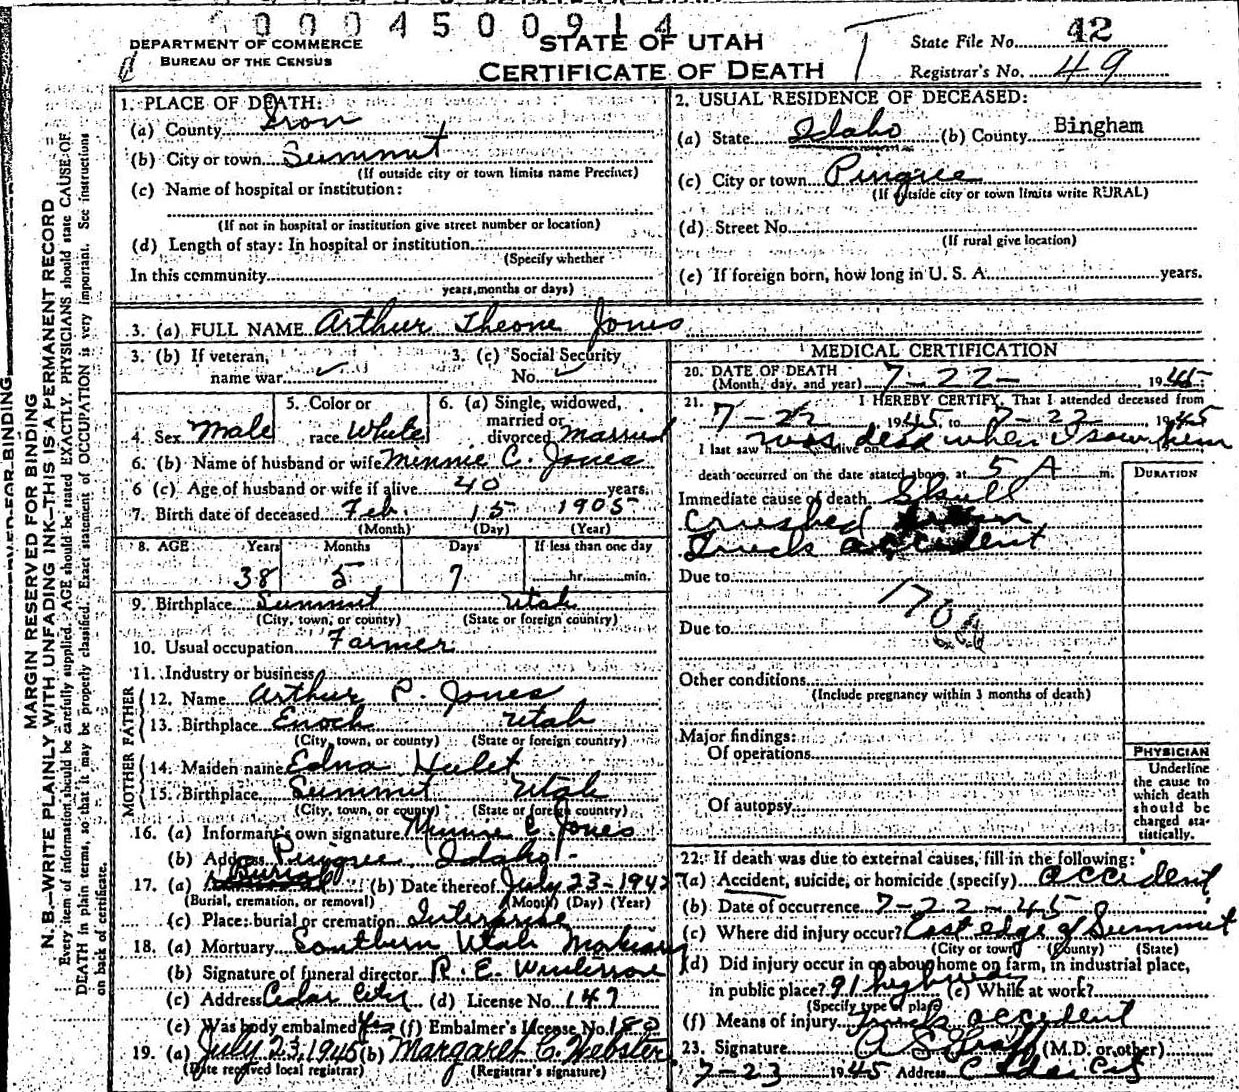 0004500914
DEPARTMENT OF COMMERCE
BUREAU OF THE CENSUS
STATE OF UTAH
CERTIFICATE OF DEATH
State File No. 42
Registrar's No. 49
MARGIN RESERVED FOR BINDING
N. B.—WRITE PLAINLY WITH UNFADING INK—THIS IS A PERMANENT RECORD
Every item of information should be carefully supplied. AGE should be stated EXACTLY. PHYSICIANS should state CAUSE OF
DEATH in plain terms, so that it may be properly classified. Exact statement of OCCUPATION is very important. See instructions
on back of certificate.
1. PLACE OF DEATH:
(a) County Iron
(b) City or town Summit
(If outside city or town limits name Precinct)
(c) Name of hospital or institution:
(If not in hospital or institution give street number or location)
(d) Length of stay: In hospital or institution
(Specify whether
In this community
years, months or days)
2. USUAL RESIDENCE OF DECEASED:
(a) State Idaho (b) County Bingham
(c) City or town Pingree
(If outside city or town limits write RURAL)
(d) Street No.
(If rural give location)
(e) If foreign born, how long in U. S. A. years.
3. (a) FULL NAME Arthur Theone Jones
3. (b) If veteran, name war
3. (c) Social Security No.
4. Sex Male
5. Color or race White
6. (a) Single, widowed, married or divorced Married
6. (b) Name of husband or wife Minnie C. Jones
6 (c) Age of husband or wife if alive 40 years.
7. Birth date of deceased Feb. 15 1905
(Month) (Day) (Year)
8. AGE: Years Months Days If less than one day
38 5 7 hr. min.
9. Birthplace Summit Utah
(City, town, or county) (State or foreign country)
10. Usual occupation Farmer
11. Industry or business
FATHER
12. Name Arthur P. Jones
13. Birthplace Enoch Utah
(City, town, or county) (State or foreign country)
MOTHER
14. Maiden name Edna Hulet
15. Birthplace Summit Utah
(City, town, or county) (State or foreign country)
16. (a) Informant's own signature Minnie C. Jones
(b) Address Pingree Idaho
17. (a) Burial (b) Date thereof July 23-1945
(Burial, cremation, or removal) (Month) (Day) (Year)
(c) Place: burial or cremation Interprise
18. (a) Mortuary Southern Utah
(b) Signature of funeral director R. E.
(c) Address Cedar City (d) License No. 147
(e) Was body embalmed Yes (f) Embalmer's License No. 180
19. (a) July 23, 1945 (b) Margaret C. Webster
(Date received local registrar) (Registrar's signature)
MEDICAL CERTIFICATION
20. DATE OF DEATH
(Month, day, and year) 7-22- 1945
21. I HEREBY CERTIFY, That I attended deceased from
7-22 1945, to 7-22 1945
I last saw h alive on was dead when I saw him
death occurred on the date stated above at 5 A m.
DURATION
Immediate cause of death Skull
crushed
Truck accident
Due to
170
Due to
Other conditions
(Include pregnancy within 3 months of death)
Major findings:
Of operations
Of autopsy
PHYSICIAN
Underline
the cause to
which death
should be
charged sta-
tistically.
22. If death was due to external causes, fill in the following:
(a) Accident, suicide, or homicide (specify) accident
(b) Date of occurrence 7-22-45
(c) Where did injury occur? East edge of Summit
(City or town) (County) (State)
(d) Did injury occur in or about home on farm, in industrial place,
in public place? 91 highway (e) While at work?
(Specify type of place)
(f) Means of injury truck accident
23. Signature (M.D. or other)
7-23 1945 Address Cedar City